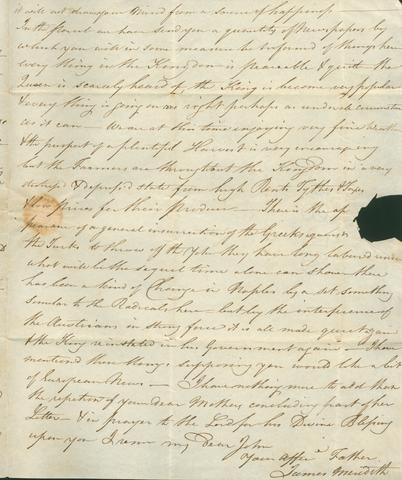 it will not draw your Mind from a sense of happiness
In the Parcel we have send you a quantity of Newspapers by
which you will in some measure be informed of things here
every thing in the Kingdom is peaceable & quiet the
Queen is scarcely heard of the King is become very popular
& every thing is going on as right perhaps as under circumstances
as it can - We are at this time enjoying very fine weather
& the prospect of a plentiful Harvest is very encouraging
but the Farmers are throughout the Kingdom in a very
distress'd & depress'd state from high Rents Tythes & Taxes
& low prices for their produce - There is the ap
pearance of a general insurrection of the Greeks against
the Turks to throw off the Yoke they have long labour'd under
what will be the sequel time alone can show there
has been a kind of Change in Naples by a set something
similar to the Radicals here - but by the interference of
the Austrians in strong force it is all made quiet again
& the King reinstated in his Government again - I have
mentioned these things supposing you would like a bit
of European News - I have nothing more to add than
the repetition of your dear Mothers concluding part of her
Letter - & in prayer to the Lord for his Divine Blessing
upon you I remn my Dear John
Your Affece Father
James Meredith